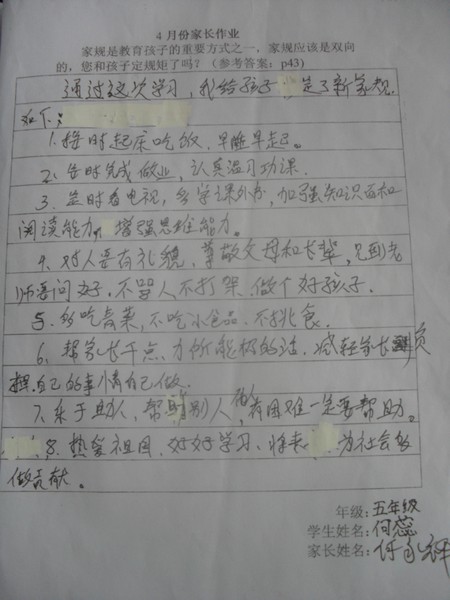 4月份家长作业
家规是教育孩子的重要方式之一,家规应该是双向
的,您和孩子定规矩了吗?(参考答案:p43)
通过这次学习,我给孩子定了新家规,
如下:
1.按时起床吃饭,早睡早起。
2.按时完成做业,认真温习功课。
3.定时看电视,多学课外书,加强知识面和
阅读能力,增强思维能力。
4.对人要有礼貌,尊敬父母和长辈,见到老
师要问好,不骂人不打架,做个好孩子.
5.多吃青菜,不吃小食品.不挑食。
6.帮家长干点力所能极的活.减轻家长负
担.自己的事情自己做.
7.乐于助人,帮助别人,有困难一定要帮助。
8.热爱祖国,好好学习.将来为社会多
做贡献。
年级:五年级
学生姓名:何蕊
家长姓名:何